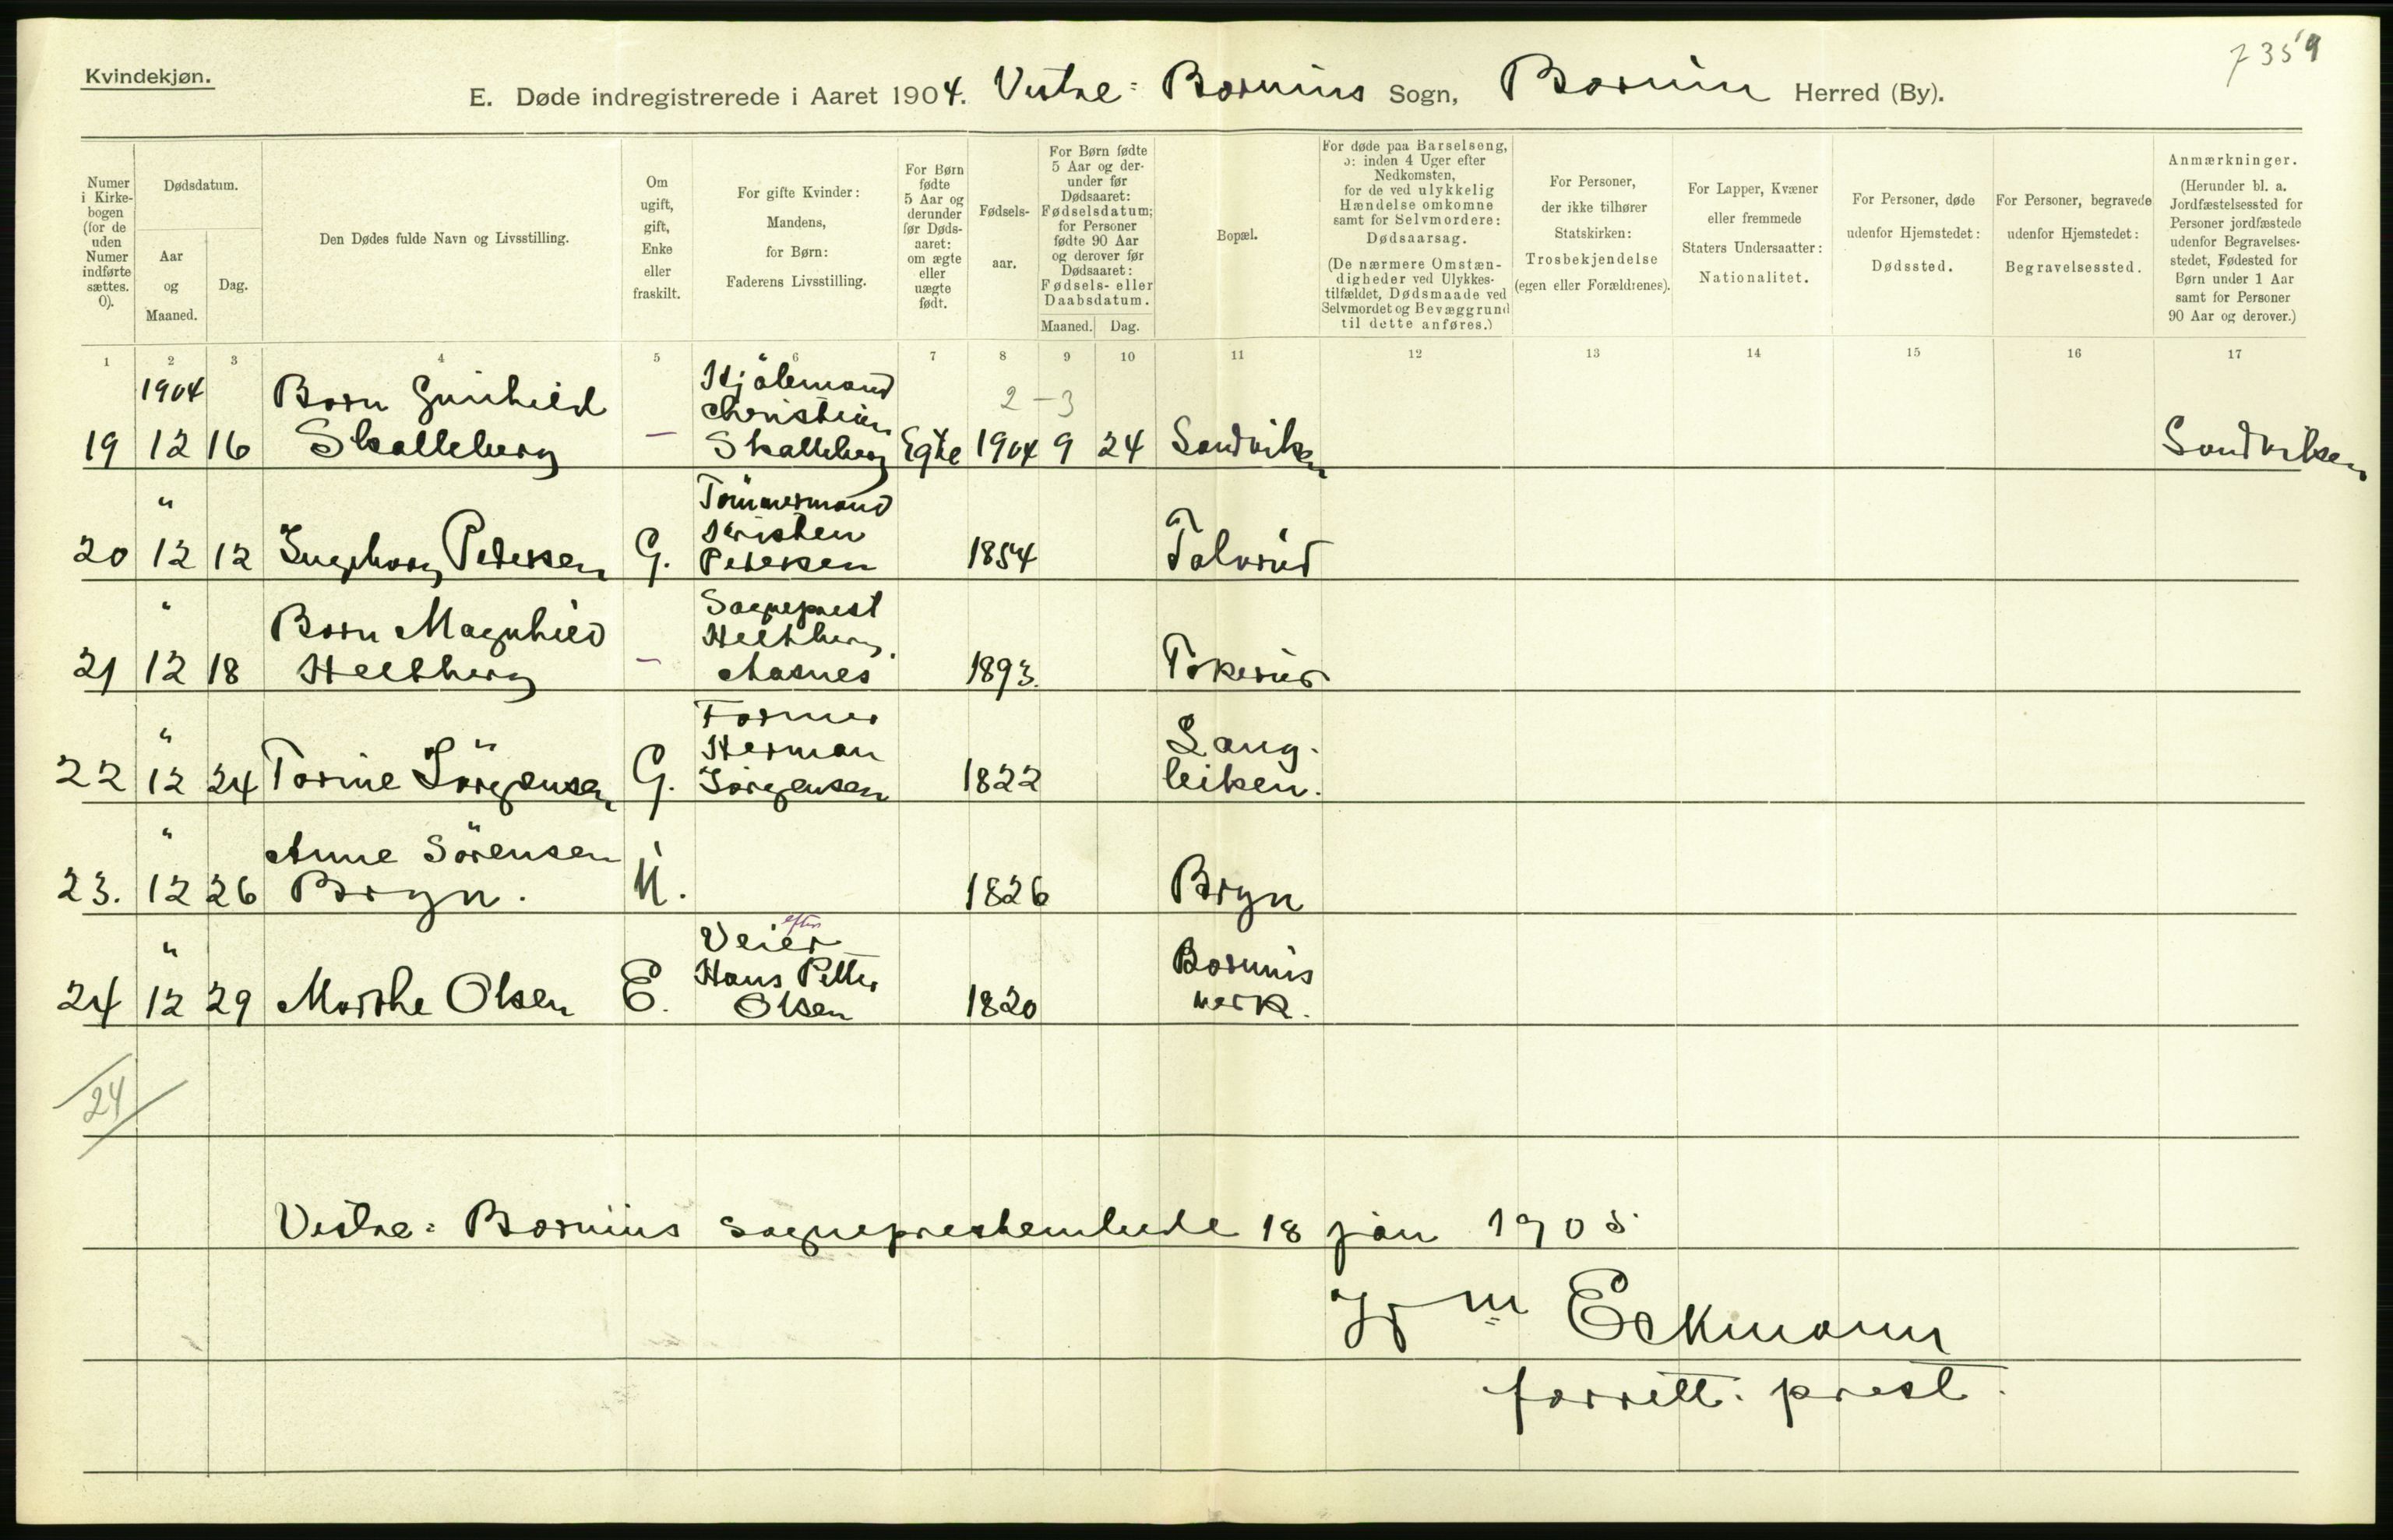 7359
Kvindekjøn.
E. Døde indregistrerede i Aaret 1904. Vestre: Bærums Sogn, Bærum Herred (By).
Numer i Kirkebogen (for de uden Numer indførte sættes. 0).
Dødsdatum.
Aar og Maaned.
Dag.
Den Dødes fulde Navn og Livsstilling.
Om ugift, gift, Enke eller fraskilt.
For gifte Kvinder: Mandens, for Børn: Faderens Livsstilling.
For Børn fødte 5 Aar og derunder før Dødsaaret: om ægte eller uægte født.
Fødselsaar.
For Børn fødte 5 Aar og derunder før Dødsaaret: Fødselsdatum; for Personer fødte 90 Aar og derover før Dødsaaret: Fødsels- eller Daabsdatum.
Maaned. Dag.
Bopæl.
For døde paa Barselseng, ɔ: inden 4 Uger efter Nedkomsten, for de ved ulykkelig Hændelse omkomne samt for Selvmordere: Dødsaarsag. (De nærmere Omstændigheder ved Ulykkestilfældet, Dødsmaade ved Selvmordet og Bevæggrund til dette anføres.)
For Personer, der ikke tilhører Statskirken: Trosbekjendelse (egen eller Forældrenes).
For Lapper, Kvæner eller fremmede Staters Undersaatter: Nationalitet.
For Personer, døde udenfor Hjemstedet: Dødssted.
For Personer, begravede udenfor Hjemstedet: Begravelsessted.
Anmærkninger. (Herunder bl. a. Jordfæstelsessted for Personer jordfæstede udenfor Begravelsesstedet, Fødested for Børn under 1 Aar samt for Personer 90 Aar og derover.)
1 2 3 4 5 6 7 8 9 10 11 12 13 14 15 16 17
1904 Barn Gunhild Christian 2-3
19 12 16 Skalleberg — Skalleberg Egte 1904 9 24 Sandviken Sandviken
" Tømmermand
Kristen
20 12 12 Ingeborg Pedersen G. Pedersen 1854
" Barn Magnhild Sogneprest
Heltberg.
21 12 18 Heltberg — Aasnes 1893.
" Farmer
Herman Lang-
22 12 24 Torine Jörgensen G. Jörgensen 1822 leiken.
" Anne Sörensen
23. 12 26 Bryn. U. 1826 Bryn
efter
" Veier Bærums
Hans Petter
24 12 29 Marthe Olsen E. Olsen 1820 verk.
24
Vestre: Bærums sogneprestembede 18 jan 1905
Wm Eckmann
forrett. prest.